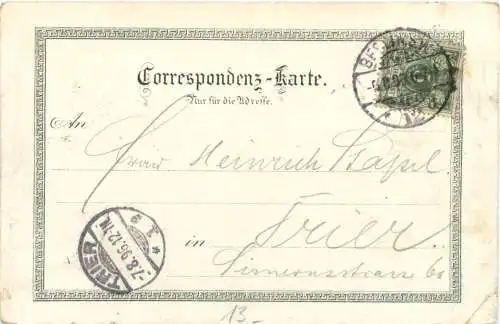 Correspondenz-Karte.
Nur für die Adresse.
An
Frau Heinrich Stapel.
in Trier.
Simeonsstrasse 60
TRIER
7.8.96.12-1N.
* 1 g
13.-